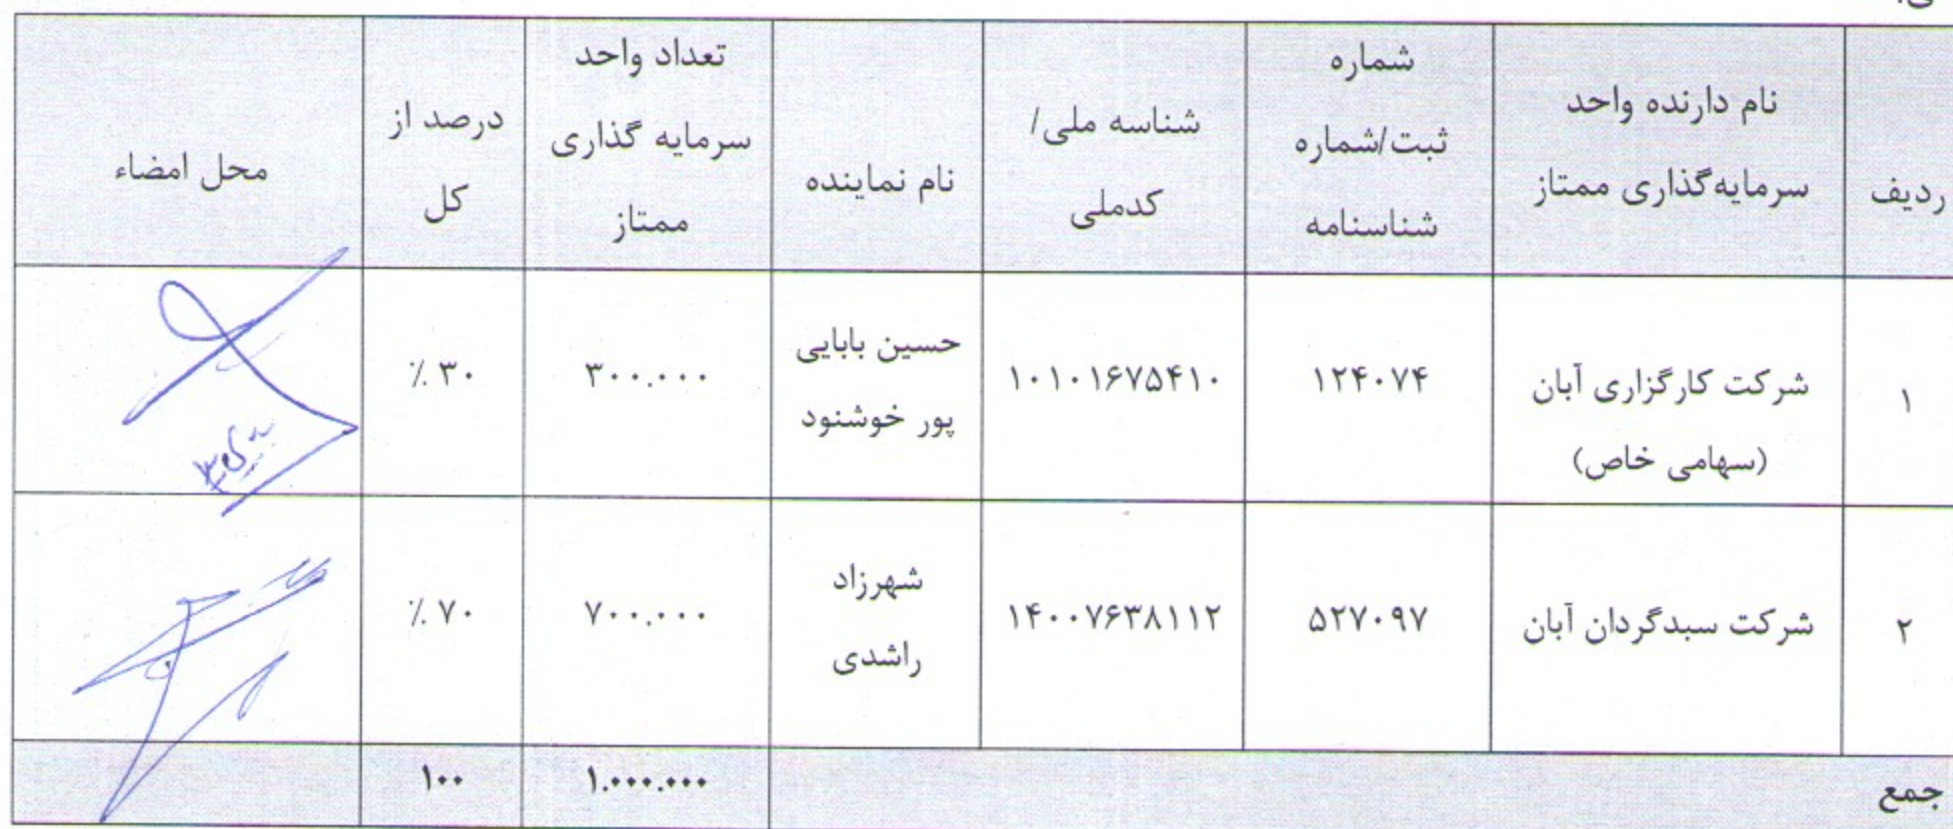 ردیف
نام دارنده واحد
سرمایه‌گذاری ممتاز
شماره
ثبت/شماره
شناسنامه
شناسه ملی/
کدملی
نام نماینده
تعداد واحد
سرمایه گذاری
ممتاز
درصد از
کل
محل امضاء
۱
شرکت کارگزاری آبان
(سهامی خاص)
۱۲۴۰۷۴
۱۰۱۰۱۶۷۵۴۱۰
حسین بابایی
پور خوشنود
۳۰۰.۰۰۰
٪ ۳۰
۲
شرکت سبدگردان آبان
۵۲۷۰۹۷
۱۴۰۰۷۶۳۸۱۱۲
شهرزاد
راشدی
۷۰۰.۰۰۰
٪ ۷۰
جمع
۱.۰۰۰.۰۰۰
۱۰۰